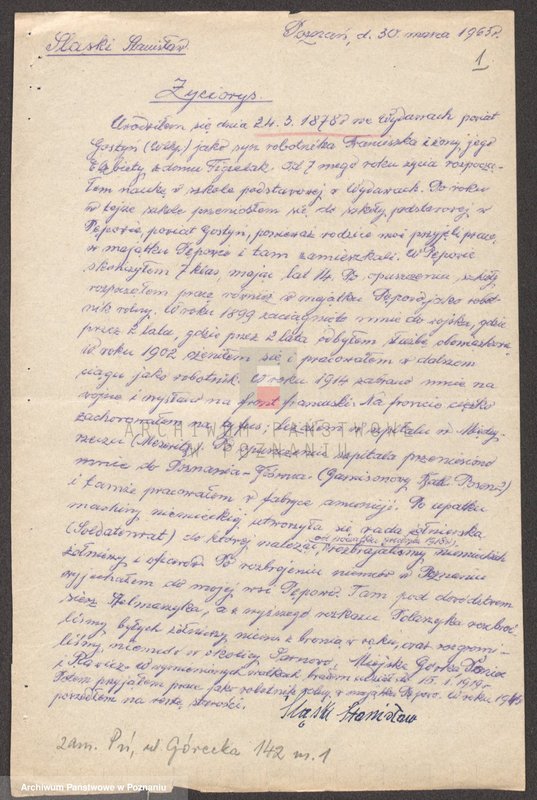 Slaski Stanisław.
Poznań, d. 30. marca 1963 r.
1
Życiorys.
Urodziłem się dnia 24. 3. 1878 r we Wydawach powiat
Gostyń (Wlkp.) jako syn robotnika Franciszka i żony jego
Elżbiety z domu Figielak. Od 7 mego roku życia rozpoczą-
łem naukę w szkole podstawowej w Wydawach. Po roku
w tejże szkole przeniosłem się do szkoły podstawowej w
Pępowie, powiat Gostyń, ponieważ rodzice moi przyjęli pracę
w majątku Pępowo i tam zamieszkali. W Pępowie
skończyłem 7 klas, mając lat 14. Po opuszczeniu szkoły
rozpocząłem pracę również w majątku Pępowo jako robot-
nik rolny. W roku 1899 zaciągnięto mnie do wojska, gdzie
przez 2 lata, gdzie przez 2 lata odbyłem służbę
W roku 1902 ożeniłem się i pracowałem w dalszem
ciągu jako robotnik. W roku 1914 zabrano mnie na
wojnę i wysłano na front francuski. Na froncie ciężko
zachorowałem na tyfus i leżałem w szpitalu w Między-
rzeczu (Meseritz). Po opuszczeniu szpitala przeniesiono
mnie do Poznania - Główna - (Garnisonowy Batl. Posen 2)
i tamże pracowałem w fabryce amunicji. Po upadku
machiny niemieckiej utworzyła się rada żołnierska
(Soldatenrat) do której należąc, rozbrajaliśmy niemieckich
żołnierzy i oficerów. Po rozbrojeniu niemców w Poznaniu
wyjechałem do mojej wsi Pępowo. Tam pod dowództwem
sierż. a z wyższego rozkazu rozbroi-
liśmy byłych żołnierzy niem. z bronią w ręku, oraz rozgromi-
liśmy niemców w okolicy Sarnowo, Miejska Górka, Poniec
i Rawicz. W wymienionych walkach brałem udział do 15. 1. 1919 r.
Potem przyjąłem pracę jako robotnik rolny w majątku Pępowo. W roku
poszedłem na rentę starości.
Śląski Stanisław
zam. Pń, ul. Górecka 142 m. 1
ARCHIWUM PAŃSTWOWE
W POZNANIU
Archiwum Państwowe w Poznaniu